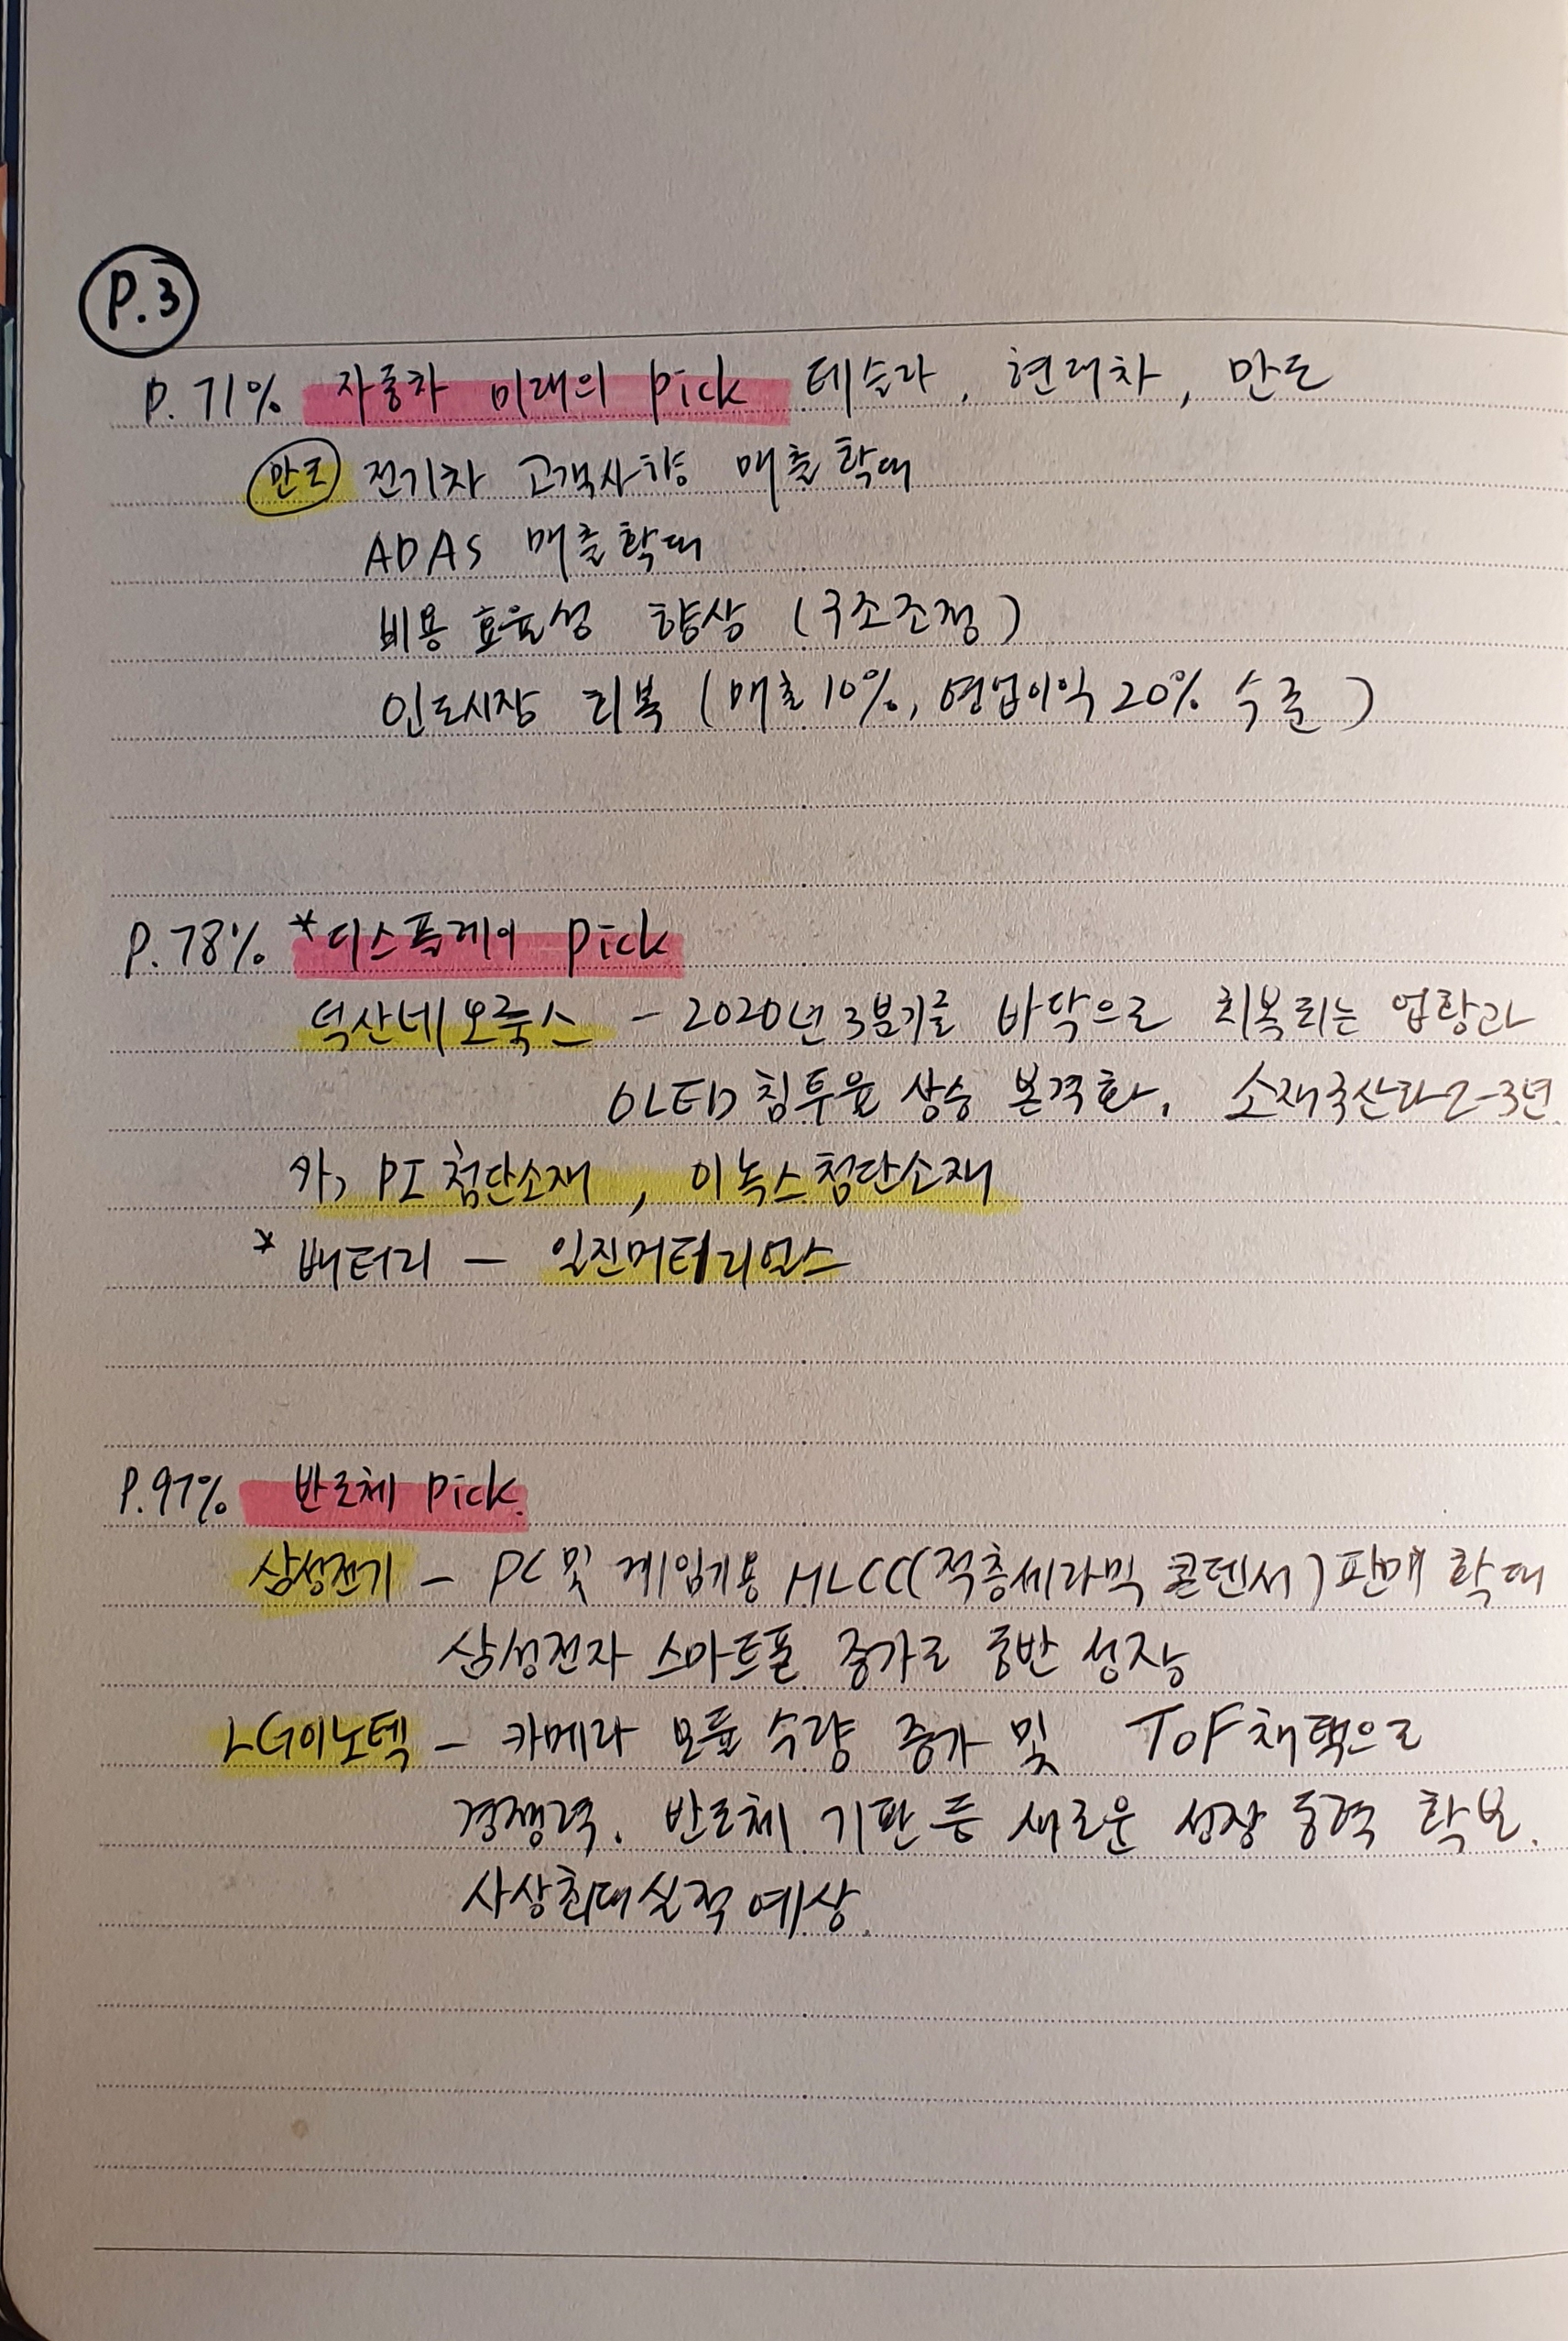 P.3
P.71% 자동차 미래의 pick 테슬라, 현대차, 만도
만도 전기차 고객사향 매출확대
ADAS 매출확대
비용 효율성 향상 (구조조정)
인도시장 회복 (매출10%, 영업이익 20% 수준)
P.78% *디스플레이 pick
덕산네오룩스 - 2020년 3분기를 바닥으로 회복되는 업황과
OLED 침투율 상승 본격화, 소재국산화 2-3년
PI첨단소재, 이녹스첨단소재
* 배터리 - 일진머티리얼스
P.97% 반도체 pick.
삼성전기 - PC 및 게임기용 MLCC(적층세라믹 콘덴서) 판매 확대
삼성전자 스마트폰 증가로 동반 성장
LG이노텍 - 카메라 모듈 수량 증가 및 ToF 채택으로
경쟁력. 반도체 기판 등 새로운 성장 동력 확보.
사상최대실적 예상.